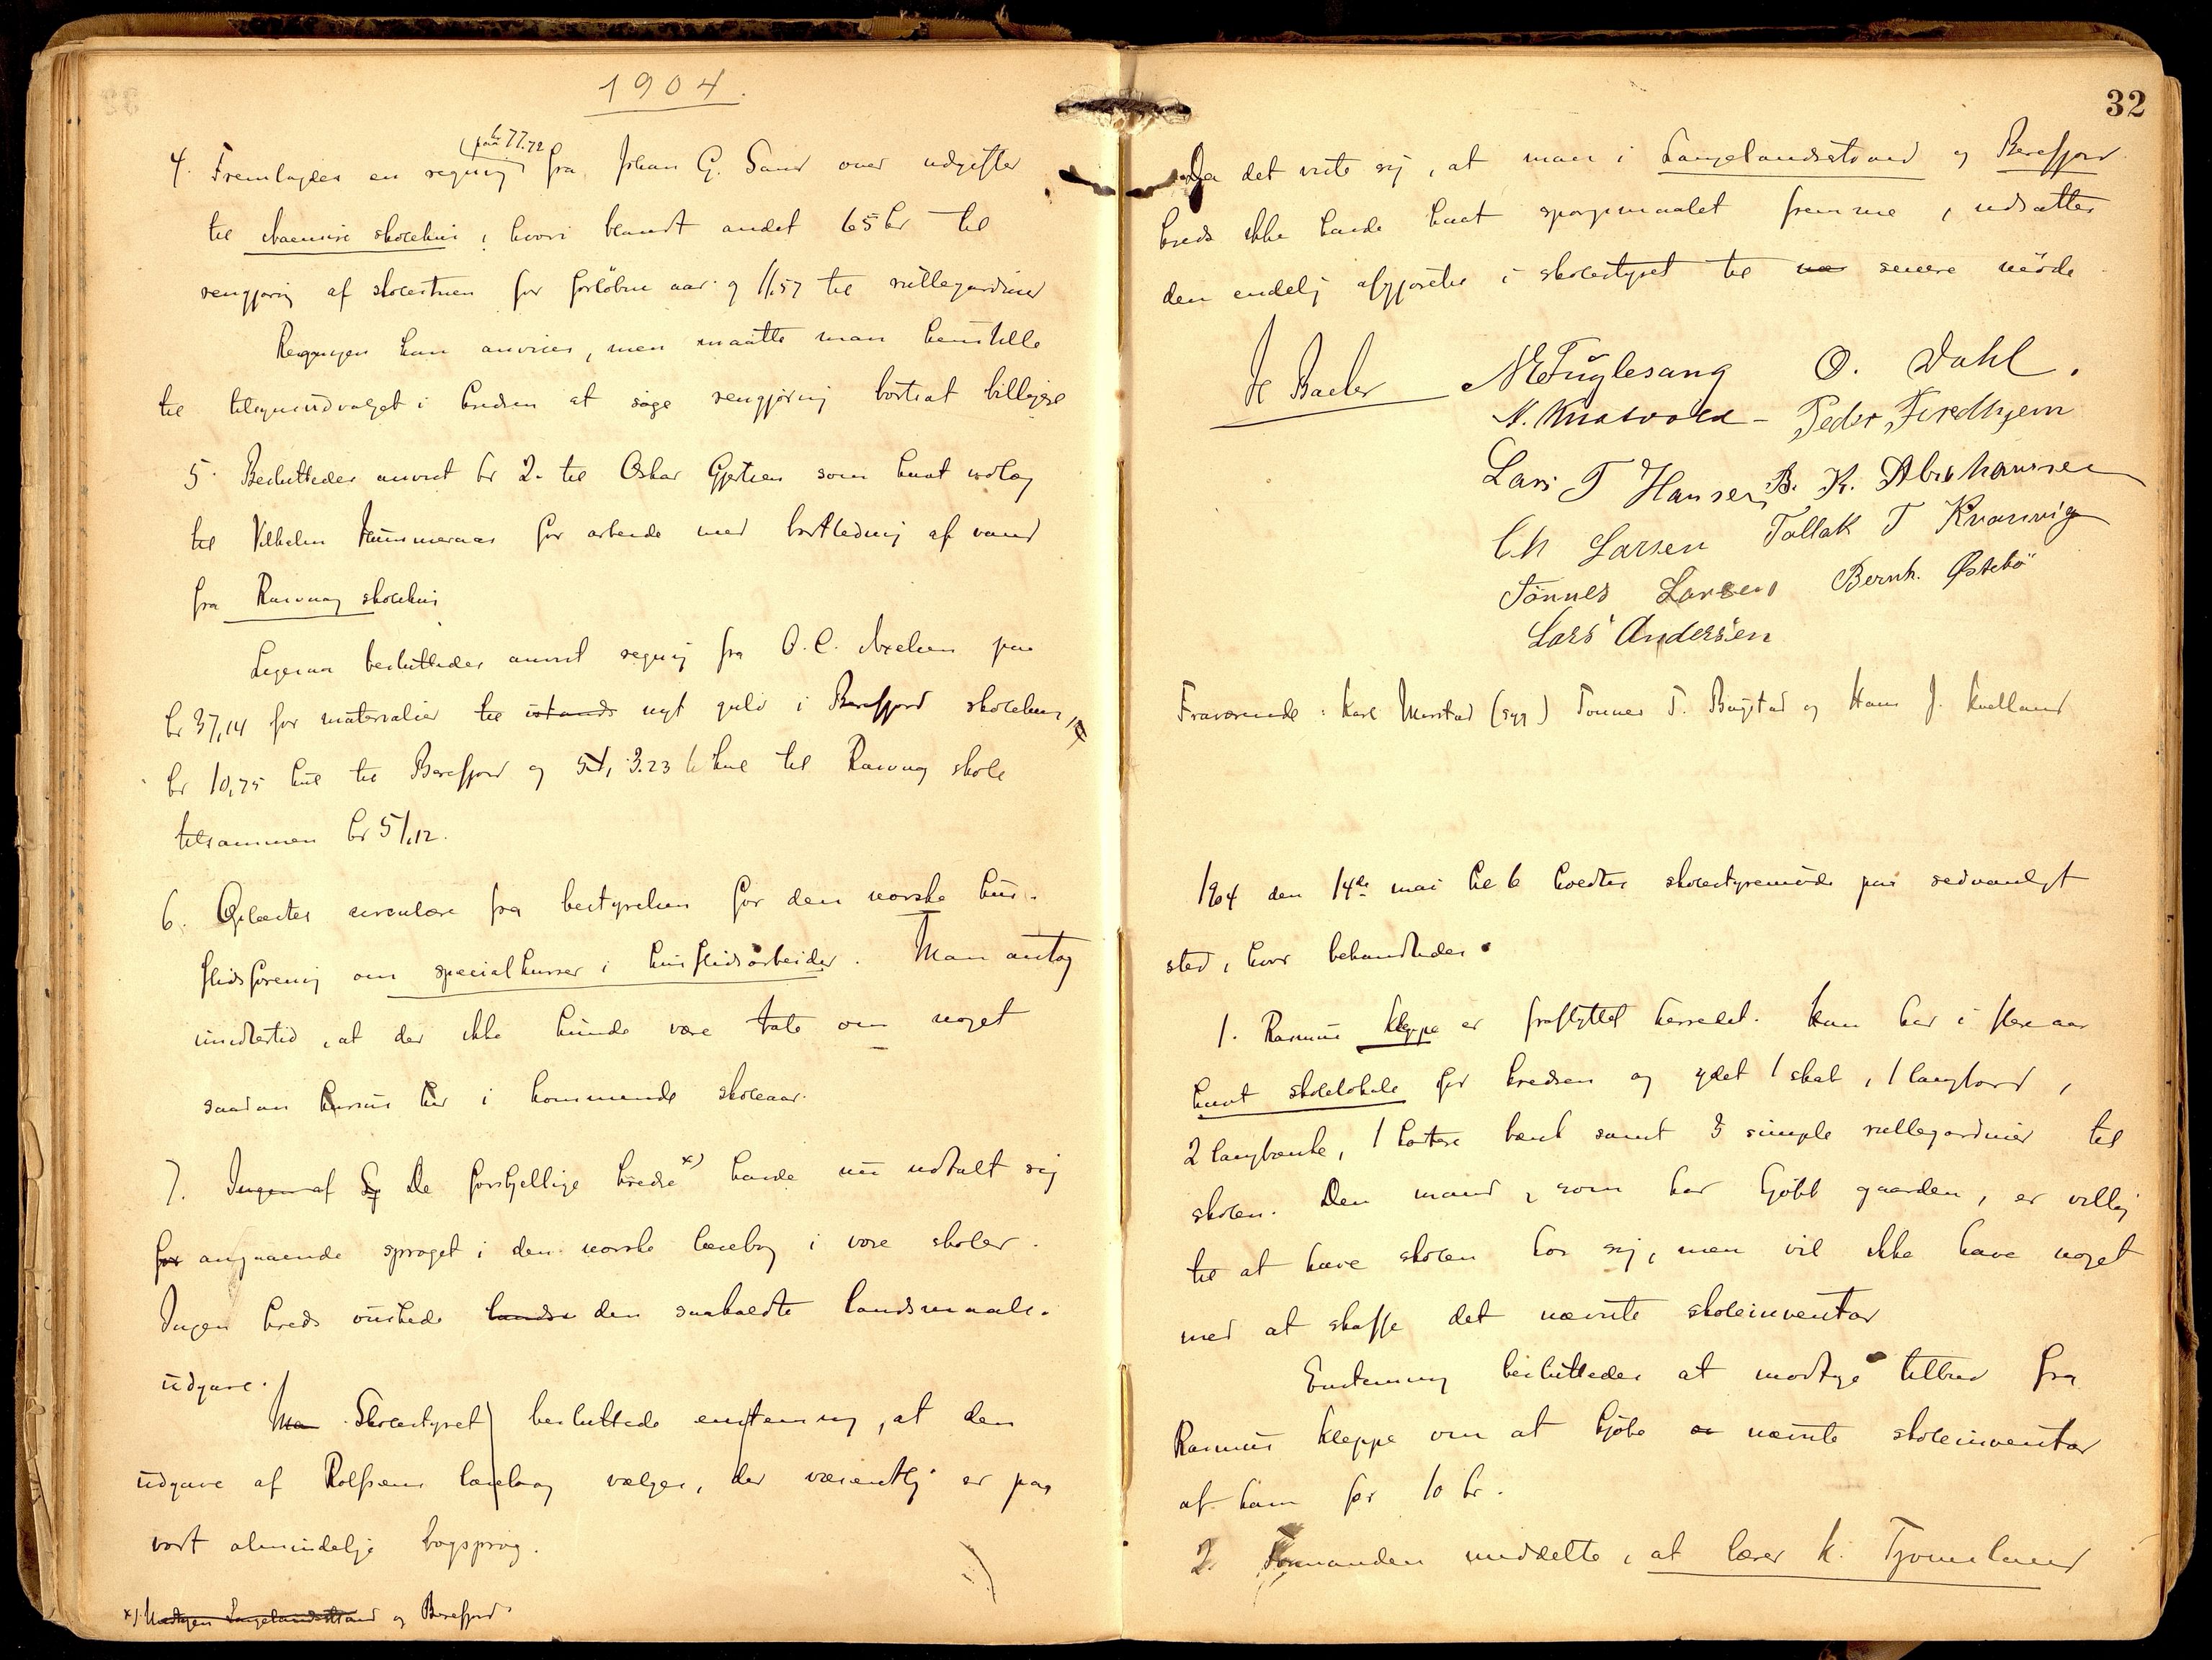 1904.
4. Fremlagdes en regning fra Johan G. Sand over udgifter
(paa kr 77.72
til skolehus, hvori blandt andet 65 kr til
rengjøring af skolestuen for forløbne aar og 11,57 til rullegardiner
Regningen kan anvises, men maatte man henstille
til tilsynsudvalget i kredsen at søge rengjøring bortsat billigere
5. Besluttedes anvist kr 2. til Oskar Gjertsen som havt udlæg
til Vilhelm for arbeide med bortledning af vand
fra Rasvaag skolehus
Ligesaa besluttedes anvist regning fra O. C. Axelsen paa
kr 37,14 for materialier til istands nyt gulv i Berefjord skolehus,
kr 10,75 kul til Berefjord og 3.23 kul til Rasvaag skole
tilsammen kr 51,12.
6. Oplæstes circulære fra bestyrelsen for den norske hus-
flidsforening om specialkurser i husflidsarbeider. Man antog
imidlertid, at der ikke kunde være tale om noget
saadan kursus her i kommende skoleaar.
7. Ingen af De forskjellige kredse x) havde nu udtalt sig
for angaaende sproget i den norske læsebog i vore skoler.
Ingen kreds ønskede landsm den saakaldte landsmaals-
udgave.
Man Skolestyret besluttede enstemmig, at den
udgave af Rolfsens læsebog vælges, der væsentlig er paa
vort almindelige bogsprog.
x) Undtagen Langelandsstrand og Berefjord
32
Da det viste sig, at man i Langelandsstrand og Berefjord
kreds ikke havde havt spørgsmaalet fremme, udsattes
den endelige afgjørelse i skolestyret til senere møde.
M E Fuglesang O. Dahl.
Peder Fredhjem
Lars T Hansen B. K. Abrahamsen
Ch Larsen Tallak T Kvanvig
Tönnes Larsen Bernh. Østebö
Lars Andersen
Fraværende: Karl (syg) Tønnes T. Bugstad og Hans J. Kvelland
1904 den 14de mai kl 6 holdtes skolestyremøde paa sedvanligt
sted, hvor behandledes.
1. Rasmus Kleppe er fraflyttet herredet. Han har i flere aar
havt skolelokale for kredsen og ydet 1 skab, 1 langbord,
2 langbænke, 1 kortere bænk samt 3 simple rullegardiner til
skolen. Den mand, som har kjøbt gaarden, er villig
til at have skolen hos sig, men vil ikke have noget
med at skaffe det nævnte skoleinventar
Enstemmig besluttedes at modtage tilbud fra
Rasmus Kleppe om at kjøbe nævnte skoleinventar
af ham for 10 kr.
2. Formanden meddelte, at lærer K. Tjomsland